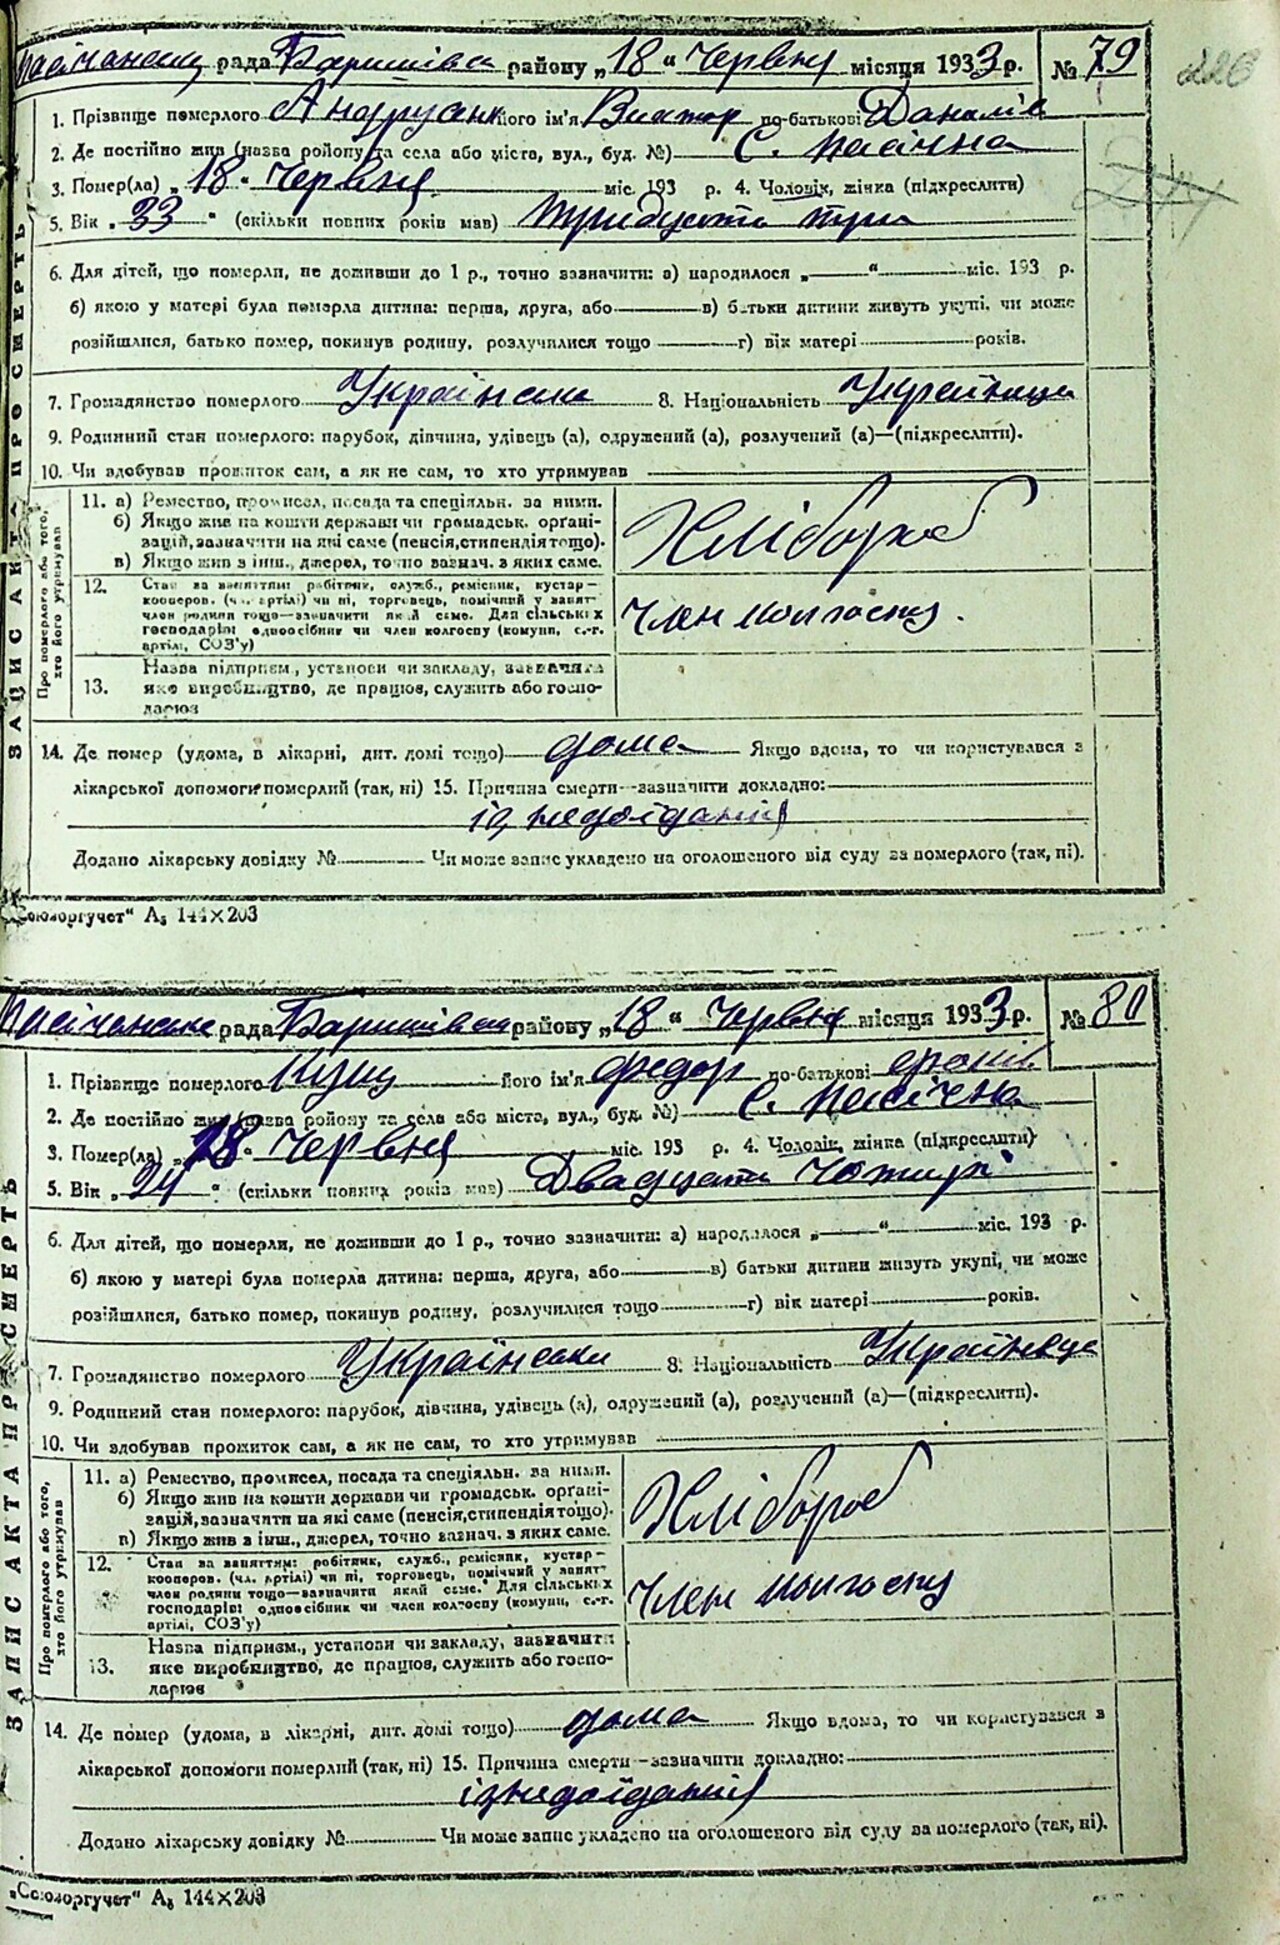 Пасічанську рада Баришівськ району „18“ Червня місяця 1933 р. № 79
226
1. Прізвище померлого Андрусенко його ім'я Виктор по-батькові Данилів
2. Де постійно жив (назва району та села або міста, вул., буд. №) С. Пасічна
3. Помер(ла) „18“ Червня міс. 193 р. 4. Чоловік, жінка (підкреслити)
5. Вік „33“ (скільки повних років мав) тридцять три
6. Для дітей, що померли, не доживши до 1 р., точно зазначити: а) народилося „ “ міс. 193 р.
б) якою у матері була померла дитина: перша, друга, або в) батьки дитини живуть укупі, чи може
розійшлися, батько помер, покинув родину, розлучилися тощо г) вік матері років.
7. Громадянство померлого Українське 8. Національність Українець
9. Родинний стан померлого: парубок, дівчина, удівець (а), одружений (а), розлучений (а)—(підкреслити).
10. Чи здобував прожиток сам, а як не сам, то хто утримував
ЗАПИС АКТА ПРО СМЕРТЬ
Про померлого або того, хто його утримував
11. а) Ремество, промисел, посада та спеціяльн. за ними.
б) Якщо жив на кошти держави чи громадськ. органі-
зацій, зазначити на які саме (пенсія, стипендія тощо).
в) Якщо жив з інш., джерел, точно вазнач. з яких саме.
Хлібороб
12. Стан за заняттям: робітник, служб., ремісник, кустар—
кооперов. (чл. артілі) чи ні, торговець, помічний у занят
член родини тощо—зазначити який саме. Для сільських
господарів: одноосібник чи член колгоспу (комуни, с.-г.
артілі, СОЗ'у)
Член колгоспу.
13. Назва підприєм., установи чи закладу, зазначити
яке виробництво, де працює, служить або госпо-
дарює
14. Де помер (удома, в лікарні, дит. домі тощо) дома Якщо вдома, то чи користувався з
лікарської допомоги померлий (так, ні) 15. Причина смерти—зазначити докладно:
із недоїдання
Додано лікарську довідку № Чи може запис укладено на оголошеного від суду за померлого (так, ні).
„Союзоргучет“ А₅ 144×203
Пасічанська рада Баришівськ району „18“ Червня місяця 1933 р. № 80
1. Прізвище померлого Куц його ім'я Федор по-батькові
2. Де постійно жив (назва району та села або міста, вул., буд. №) С. Пасічна
3. Помер(ла) „18“ Червня міс. 193 р. 4. Чоловік, жінка (підкреслити)
5. Вік „24“ (скільки повних років мав) Двадцать чотирі
6. Для дітей, що померли, не доживши до 1 р., точно зазначити: а) народилося „ “ міс. 193 р.
б) якою у матері була померла дитина: перша, друга, або в) батьки дитини живуть укупі, чи може
розійшлися, батько помер, покинув родину, розлучилися тощо г) вік матері років.
7. Громадянство померлого Українське 8. Національність Українець
9. Родинний стан померлого: парубок, дівчина, удівець (а), одружений (а), розлучений (а)—(підкреслити).
10. Чи здобував прожиток сам, а як не сам, то хто утримував
ЗАПИС АКТА ПРО СМЕРТЬ
Про померлого або того, хто його утримував
11. а) Ремество, промисел, посада та спеціяльн. за ними.
б) Якщо жив на кошти держави чи громадськ. органі-
зацій, зазначити на які саме (пенсія, стипендія тощо).
в) Якщо жив в інш., джерел, точно вазнач. з яких саме.
Хлібороб
12. Стан за заняттям: робітник, служб., ремісник, кустар—
кооперов. (чл. артілі) чи ні, торговець, помічний у занят
член родини тощо—зазначити який саме. Для сільських
господарів: одноосібник чи член колгоспу (комуни, с.-г.
артілі, СОЗ'у)
Член колгоспу
13. Назва підприєм., установи чи закладу, зазначити
яке виробництво, де працює, служить або госпо-
дарює
14. Де помер (удома, в лікарні, дит. домі тощо) дома Якщо вдома, то чи користувався з
лікарської допомоги померлий (так, ні) 15. Причина смерти—зазначити докладно:
із недоїдання
Додано лікарську довідку № Чи може запис укладено на оголошеного від суду за померлого (так, ні).
„Союзоргучет“ А₅ 144×203